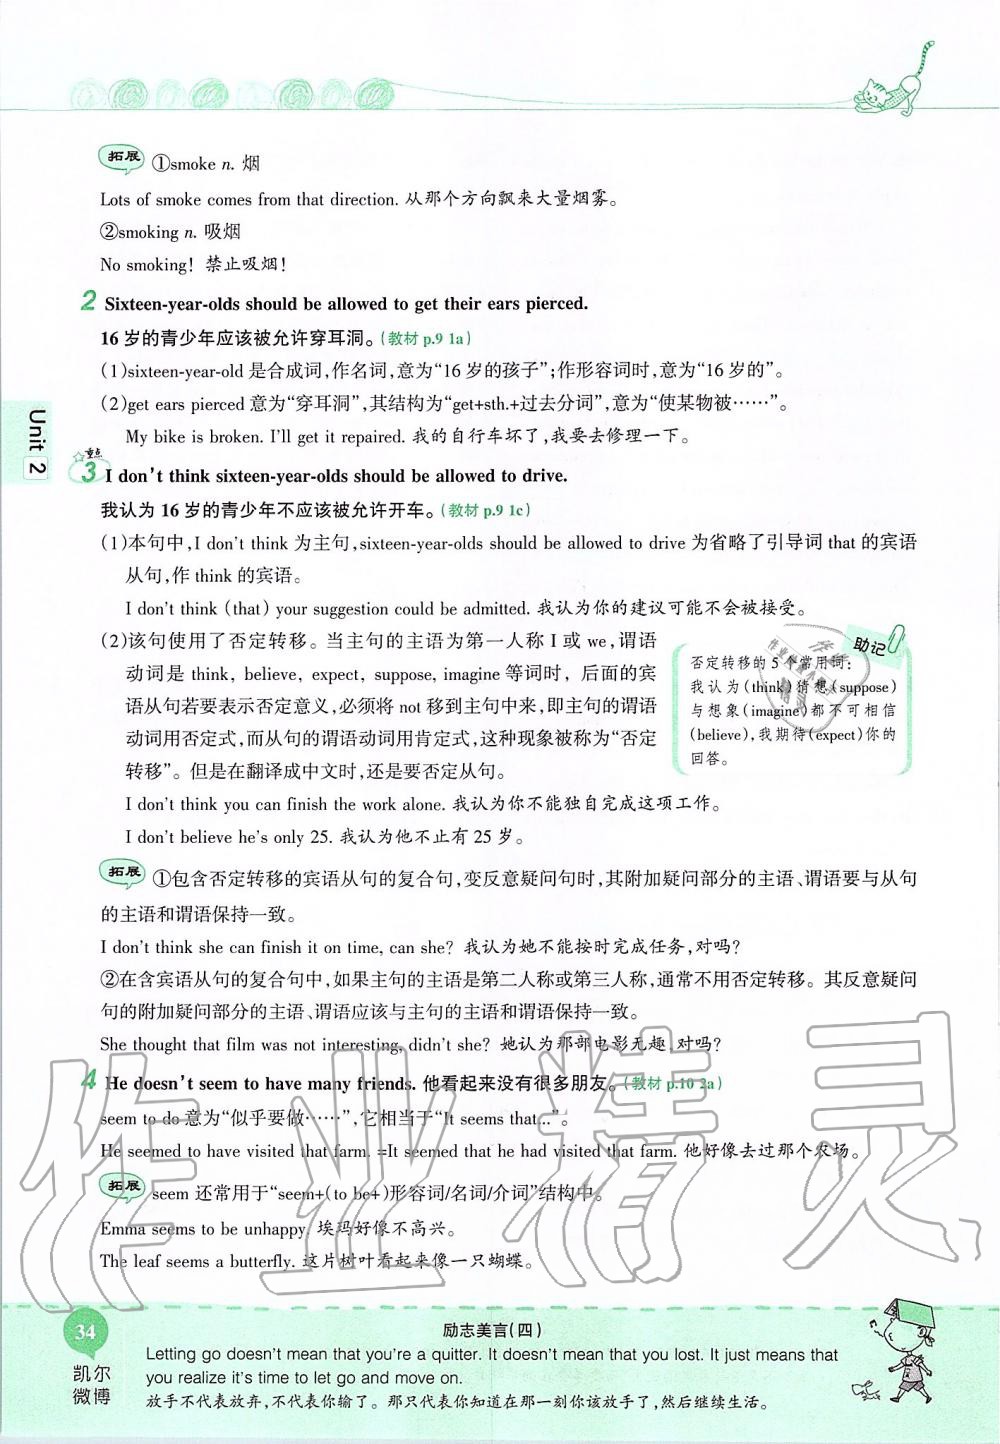 拓展 ①smoke n. 烟
Lots of smoke comes from that direction. 从那个方向飘来大量烟雾。
②smoking n. 吸烟
No smoking! 禁止吸烟!
2 Sixteen-year-olds should be allowed to get their ears pierced.
16 岁的青少年应该被允许穿耳洞。(教材 p.9 1a)
(1)sixteen-year-old 是合成词,作名词,意为“16 岁的孩子”;作形容词时,意为“16 岁的”。
(2)get ears pierced 意为“穿耳洞”,其结构为“get+sth.+过去分词”,意为“使某物被……”。
My bike is broken. I'll get it repaired. 我的自行车坏了,我要去修理一下。
Unit 2
重点
3 I don't think sixteen-year-olds should be allowed to drive.
我认为 16 岁的青少年不应该被允许开车。(教材 p.9 1c)
(1)本句中,I don't think 为主句,sixteen-year-olds should be allowed to drive 为省略了引导词 that 的宾语
从句,作 think 的宾语。
I don't think (that) your suggestion could be admitted. 我认为你的建议可能不会被接受。
(2)该句使用了否定转移。当主句的主语为第一人称 I 或 we,谓语
动词是 think, believe, expect, suppose, imagine 等词时，后面的宾
语从句若要表示否定意义,必须将 not 移到主句中来,即主句的谓语
动词用否定式,而从句的谓语动词用肯定式,这种现象被称为“否定
转移”。但是在翻译成中文时,还是要否定从句。
I don't think you can finish the work alone. 我认为你不能独自完成这项工作。
I don't believe he's only 25. 我认为他不止有 25 岁。
助记
否定转移的 5 个常用词:
我认为(think)猜想(suppose)
与想象(imagine)都不可相信
(believe),我期待(expect)你的
回答。
拓展 ①包含否定转移的宾语从句的复合句,变反意疑问句时,其附加疑问部分的主语、谓语要与从句
的主语和谓语保持一致。
I don't think she can finish it on time, can she? 我认为她不能按时完成任务,对吗?
②在含宾语从句的复合句中,如果主句的主语是第二人称或第三人称,通常不用否定转移。其反意疑问
句的附加疑问部分的主语、谓语应该与主句的主语和谓语保持一致。
She thought that film was not interesting, didn't she? 她认为那部电影无趣,对吗?
4 He doesn't seem to have many friends. 他看起来没有很多朋友。(教材 p.10 2a)
seem to do 意为“似乎要做……”,它相当于“It seems that...”。
He seemed to have visited that farm. =It seemed that he had visited that farm. 他好像去过那个农场。
拓展 seem 还常用于“seem+(to be+)形容词/名词/介词”结构中。
Emma seems to be unhappy. 埃玛好像不高兴。
The leaf seems a butterfly. 这片树叶看起来像一只蝴蝶。
作业精灵
34
凯尔
微博
励志美言(四)
Letting go doesn't mean that you're a quitter. It doesn't mean that you lost. It just means that
you realize it's time to let go and move on.
放手不代表放弃,不代表你输了。那只代表你知道在那一刻你该放手了,然后继续生活。